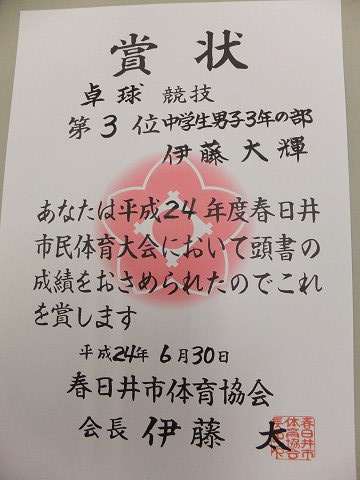 賞状
卓球 競技
第3位中学生男子3年の部
伊藤大輝
あなたは平成24年度春日井
市民体育大会において頭書の
成績をおさめられたのでこれ
を賞します
平成24年6月30日
春日井市体育協会
会長 伊藤 太